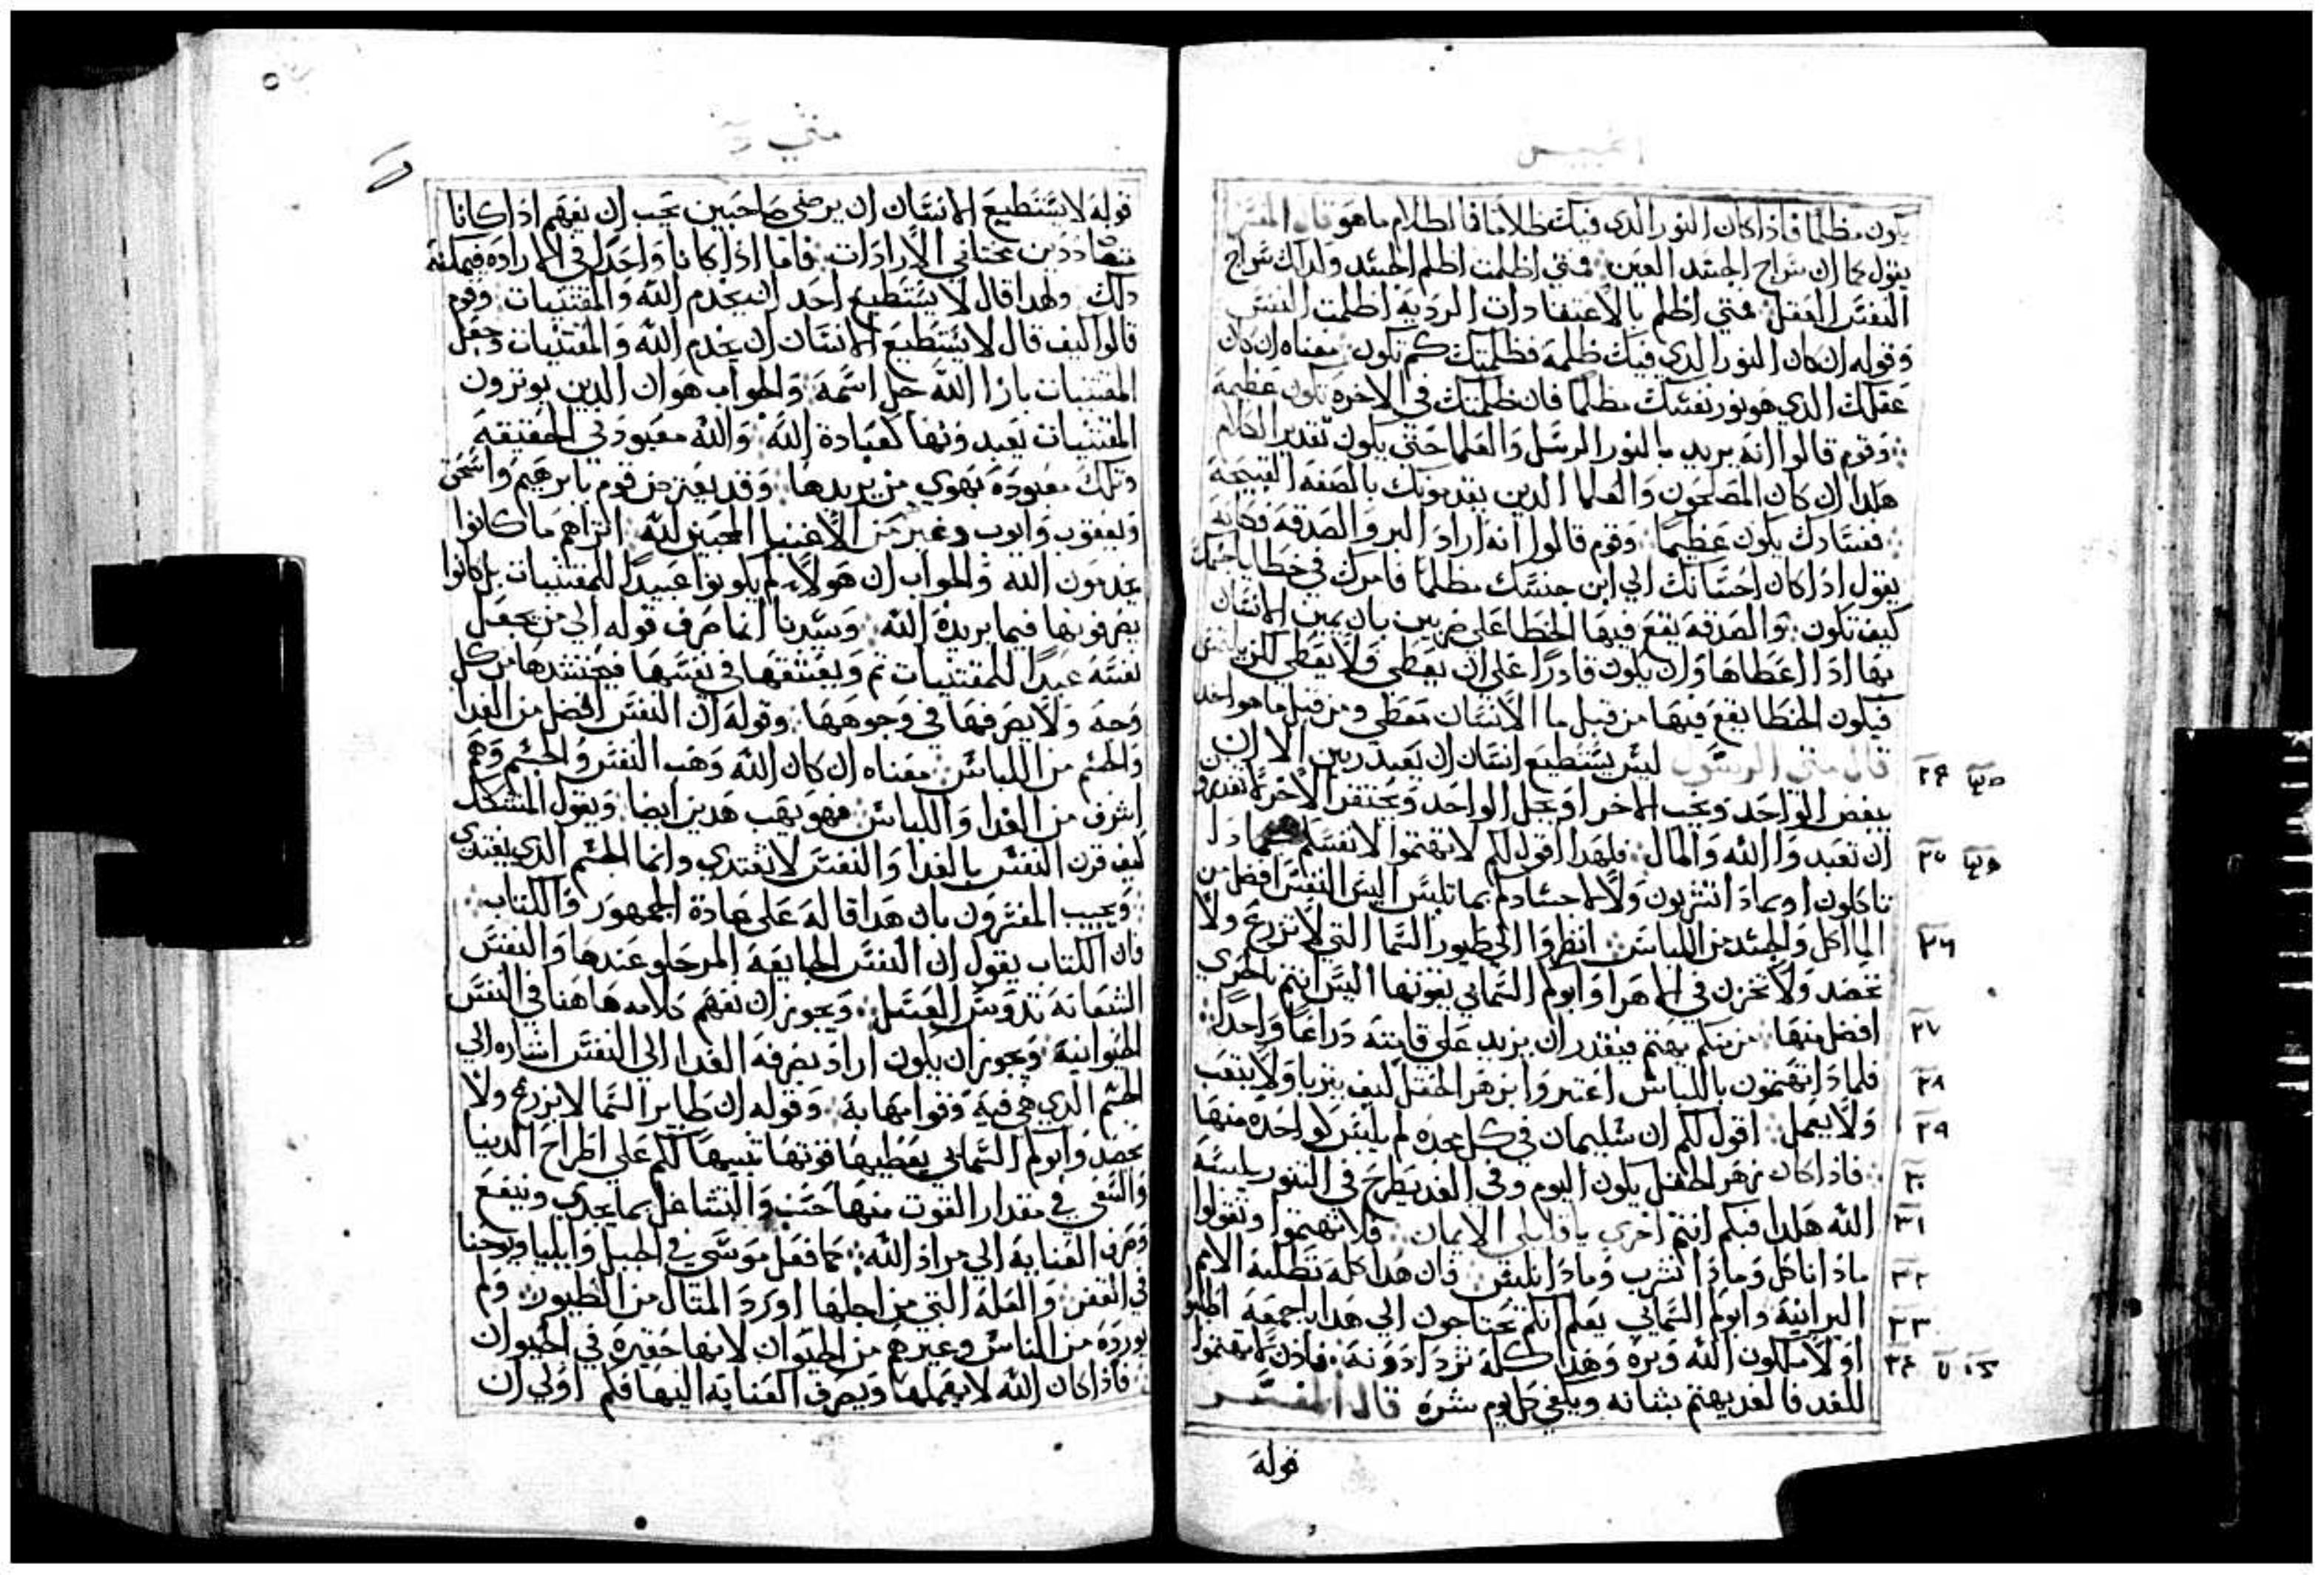 يكون مظلمًا فاذا كان النور الدي فيك ظلامًا فالظلام ما هو قال المفسر
يقول كما ان سراج الجسد العين فمتي اظلمت اظلم الجسد ولدلك سراج
النفس العقل فمتي اظلم بالاعتقادات الرديه اظلمت النفس
وقوله ان كان النور الدي فيك ظلمة فظلمتك كم تكون معناه ان كان
عقلك الدي هو نور نفسك مظلمًا فان ظلمتك في الاخرة تكون عظيمة
وقوم قالوا انه يريد بالنور الرسل والعلما حتي يكون تقدير الكلام
هكدا ان كان المصلحون والعلما الدين يقدمونك بالصفه القبيحة
ففسادك يكون عظيمًا وقوم قالوا انه اراد البر والصدقه فكانه
يقول ادا كان احسانك الي ابن جنسك مظلمًا فامرك في خطاياك
كيف تكون والصدقه يقع فيها الخطا علي ضربين بان يمين الانسان
بها ادا اعطاها وان يكون قادرًا علي ان يعطي ولا يعطي لكن
فيكون الخطا يقع فيها من قبل ما الانسان معطي ومن قبل ما هو اخد
قال متي الرسول ليس يستطيع انسان ان يعبد ربين الا ان
يبغض الواحد ويحب الاخر او يجل الواحد ويحتقر الاخر
٢٤
ان تعبدوا الله والمال فلهدا اقول لكم لا تهتموا لانفسكم
٢٥
تاكلون او بمادا تشربون ولا لاجسادكم بما تلبس اليس النفس افضل من
الماكل والجسد من اللباس انظروا الي طيور السما التي لا تزرع ولا
٢٦
تحصد ولا تخزن في الاهرا وابوكم السمايي يقوتها اليس انتم بالحري
افضل منها من منكم يهتم فيقدر ان يزيد علي قامته دراعًا واحدًا
٢٧
فلمادا تهتمون باللباس اعتبروا بزهر الحقل كيف يتربا ولا يتعب
٢٨
ولا يعمل اقول لكم ان سليمان في كل مجده لم يلبس كواحده منها
٢٩
فادا كان زهر الحقل يكون اليوم وفي الغد يطرح في التنور يلبسه
٣٠
الله هكدا فبكم انتم احري يا قليلي الايمان فلا تهتموا وتقولوا
٣١
مادا ناكل ومادا نشرب ومادا نلبس فان هدا كله تطلبه الامم
٣٢
البرانية وابوكم السمايي يعلم انكم تحتاجون الي هدا باجمعه اطلبوا
٣٣
اولًا ملكوت الله وبره وهدا كله تزدادونه فادن لا تهتموا
٣٤
للغد فالغد يهتم بشانه ويكفي كل يوم شره قال المفسر
قوله
متي
قوله لا يستطيع الانسان ان يرضي صاحبين يجب ان تفهم ادا كانا
متضاددين مختلفي الارادات فاما ادا كانا واحدًا في الاراده فيمكنه
دلك ولهدا قال لا يستطيع احد ان يخدم الله والمقتنيات وقوم
قالوا كيف قال لا يستطيع الانسان ان يخدم الله والمقتنيات وجعل
المقتنيات بازا الله جل اسمه والجواب هو ان الدين يوترون
المقتنيات يعبدونها كعبادة الله والله معبود في الحقيقه
وتلك معبودة بهوي من يريدها وقد يعترض قوم بابرهيم واسحق
ويعقوب وايوب وغيرهم من الاغنيا المحبين لله اتراهم ما كانوا
يخدمون الله والجواب ان هولاء لم يكونوا عبيدًا للمقتنيات بل كانوا
يصرفونها فيما يريدة الله وسيدنا انما صرف قوله الي من يجعل
نفسه عبدًا للمقتنيات ثم ويعتقها في نفسها فيحتشدها من كل
وجه ولا يصرفها في وجوهها وقوله ان النفس افضل من الغدا
والجسم من اللباس معناه ان كان الله وهب النفس والجسم وهم
اشرف من الغدا واللباس فهو يهب هدين ايضا ويقول المتشكك
كيف قرن النفس بالغدا والنفس لا تغتدي وانما الجسم الدي يغتدي
ويجيب المفسرون بان هدا قاله علي عادة الجمهور والكتاب
فان الكتاب يقول ان النفس الجايعة المر حلو عندها والنفس
الشبعانه تدوس العسل ويجوز ان تفهم كلامه هاهنا في النفس
الحيوانية ويجوز ان يكون اراد بصرفه الغدا الي النفس اشاره الي
الجسم الدي هي فيه وقوامها به وقوله ان طاير السما لا يزرع ولا
يحصد وابوكم السمايي يعطيها قوتها تنبيها لكم علي اطراح الدنيا
والسعي في مقدار القوت منها حسب والتشاغل بما يجدي وينفع
وصرف العناية الي مراد الله كما فعل موسي في الجبل وايليا ويوحنا
في القفر والعلة التي من اجلها اورد المثال من الطيور ولم
يورده من الناس وغيرهم من الحيوان لانها حقيرة في الحيوان
فادا كان الله لا يهملها ويصرف العناية اليها فكم اولي ان